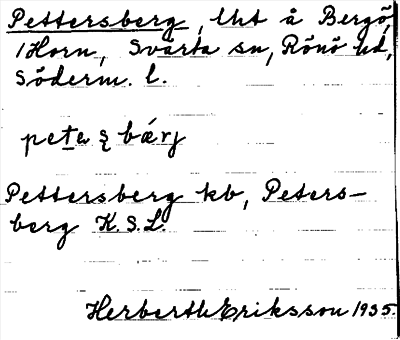 Pettersberg, lht å Bergö,
/Horn, Svärta sn, Rönö hd,
Söderm. l.
Pettersberg kb, Peters-
berg K.S.L.
Herberth Eriksson 1935.